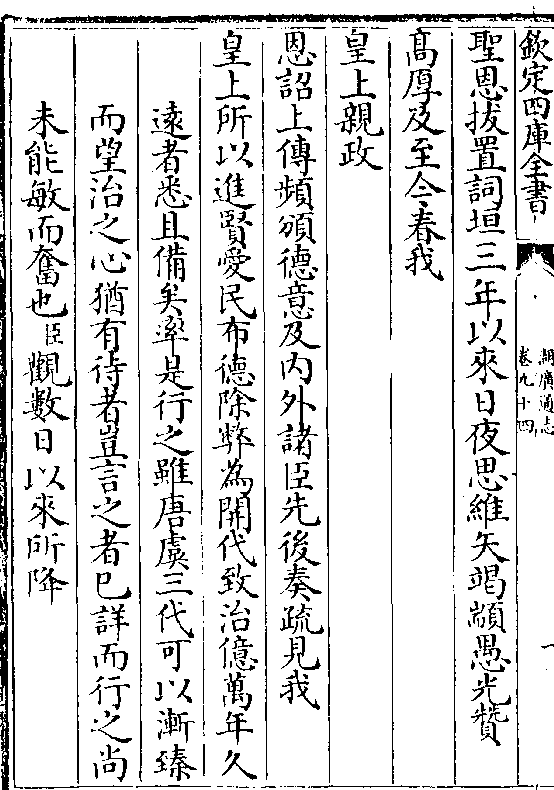 欽定四庫全書
湖廣通志
卷九十四
一
聖恩拔置詞垣三年以來日夜思維矢竭顓愚光贊
髙厚及至今春我
皇上親政
恩詔上傳頻頒德意及内外諸臣先後奏疏見我
皇上所以進賢愛民布德除弊為開代致治億萬年久
遠者悉且備矣率是行之雖唐虞三代可以漸臻
而望治之心猶有待者豈言之者已詳而行之尚
未能敏而奮也臣觀數日以來所降